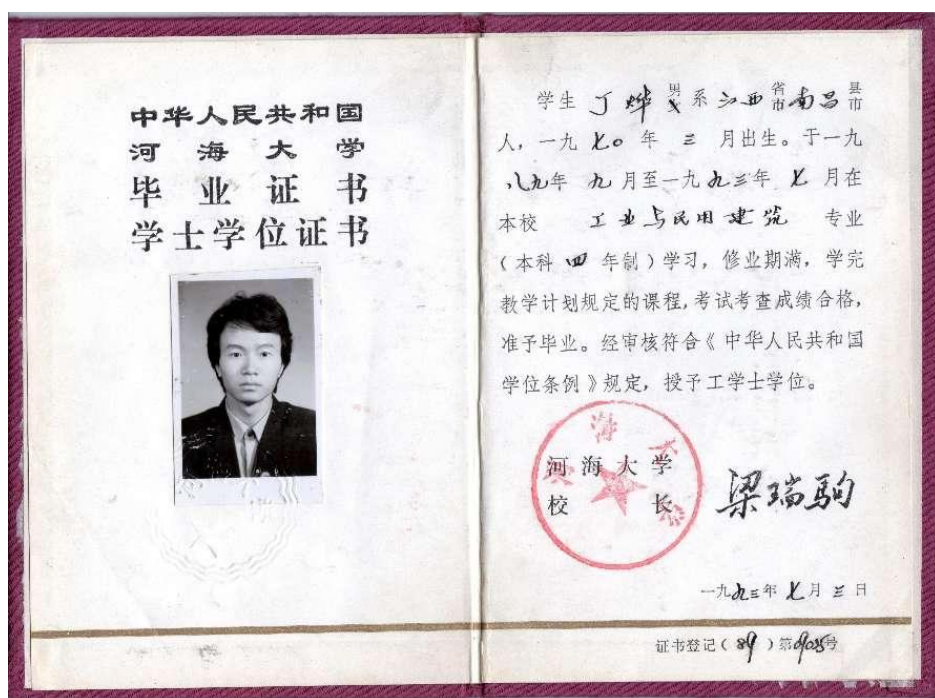 中华人民共和国
河海大学
毕业证书
学士学位证书
学生 丁烨 男女 系 江西 省市 南昌 县市
人，一九七〇年 三 月出生。于一九
八九年 九 月至一九九三年 七 月在
本校 工业与民用建筑 专业
（本科 四 年制）学习，修业期满，学完
教学计划规定的课程，考试考查成绩合格，
准予毕业。经审核符合《中华人民共和国
学位条例》规定，授予工学士学位。
河海大学
河海大学
校长 梁瑞驹
一九九三年 七 月 三 日
证书登记（89）第 号